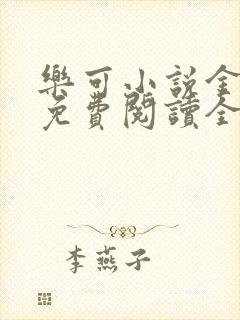 樂可小說全
免費閱讀全
李燕子